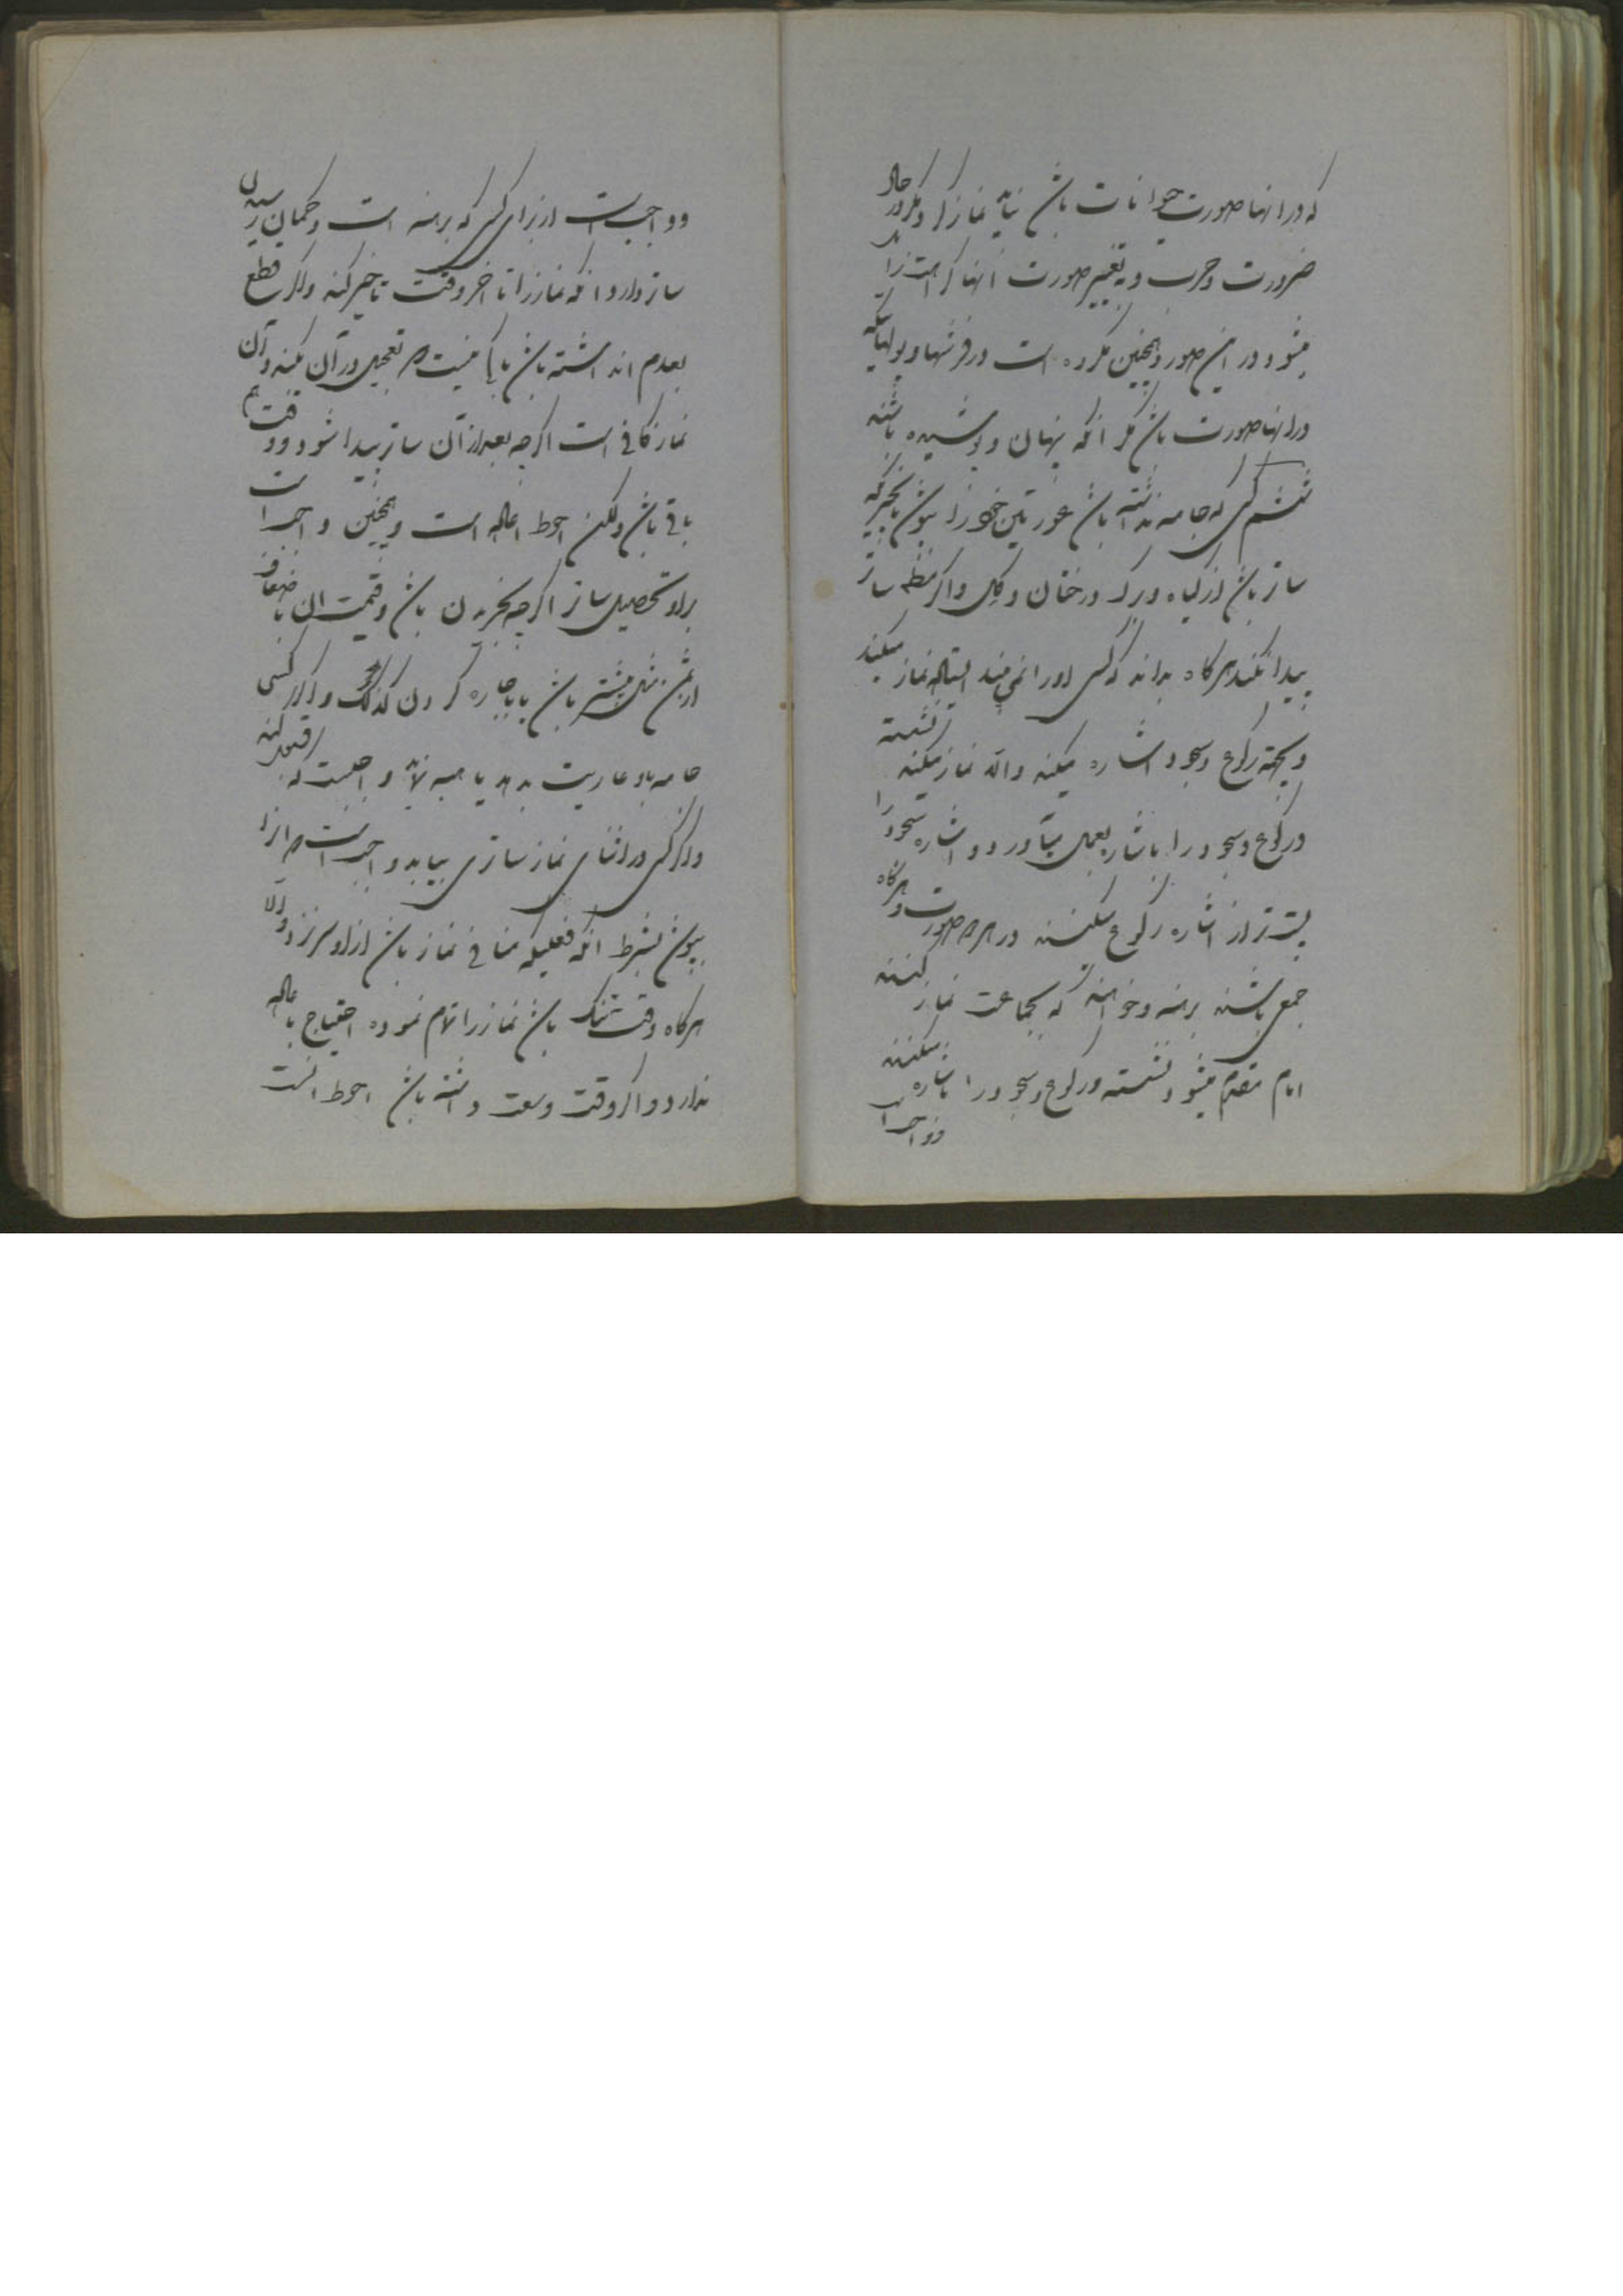 که در انها صورت حیوانات باشد نباید نماز کرد مگر در حال
ضرورت و حرب و به تغییر صورت انها کراهت زایل
میشود در این صور و همچنین مکروه است در فرشها و پولهائیکه
در انها صورت باشد مگر انکه پنهان و پوشیده باشند
ششم کسی که جامه نداشته باشد عورتین خود را بپوشد بچیزیکه
ساتر باشد از گیاه و برک درختان و گل و اگر مطلقا ساتر
پیدا نکند هرگاه بداند که کسی او را نمی بیند ایستاده نماز میکند
و بجهة رکوع و سجود اشاره میکند و الا نماز میکند نشسته
و رکوع و سجود را باشاره بعمل میآورد و اشاره سجود را
پست تر از اشاره رکوع میکنند در هر دو صورت و هرگاه
جمعی باشند برهنه و خواهند که بجماعت نماز کنند
امام مقدم میشود نشسته و رکوع و سجود را باشاره میکنند
و واجب است
و واجب است از برای کسی که برهنه است و گمان رسیدن
ساتر دارد انکه نماز را تا اخر وقت تاخیر کند و اگر قطع
بعدم ان داشته باشد باکی نیست که تعجیل در آن بکند و آن
نماز کافی است اگرچه بعد از آن ساتر پیدا شود و وقت هم
باقی باشد و لکن احوط اعاده است و همچنین واجب است
بر او تحصیل ساتر اگرچه بخریدن باشد و قیمت ان باضعاف
از ثمن مثل بیشتر باشد یا باجاره کردن کذلک و اگر کسی
جامه باو عاریت بدهد یا هبه نماید واجبست که قبول کند
و اگر کسی در اثنای نماز ساتری بیابد واجب است که انرا
بپوشد بشرط انکه فعلیکه منافی نماز باشد از او سر نزند و الا
هرگاه وقت تنک باشد نماز را تمام نموده احتیاج باعاده
ندارد و اگر وقت وسعت داشته باشد احوط انست